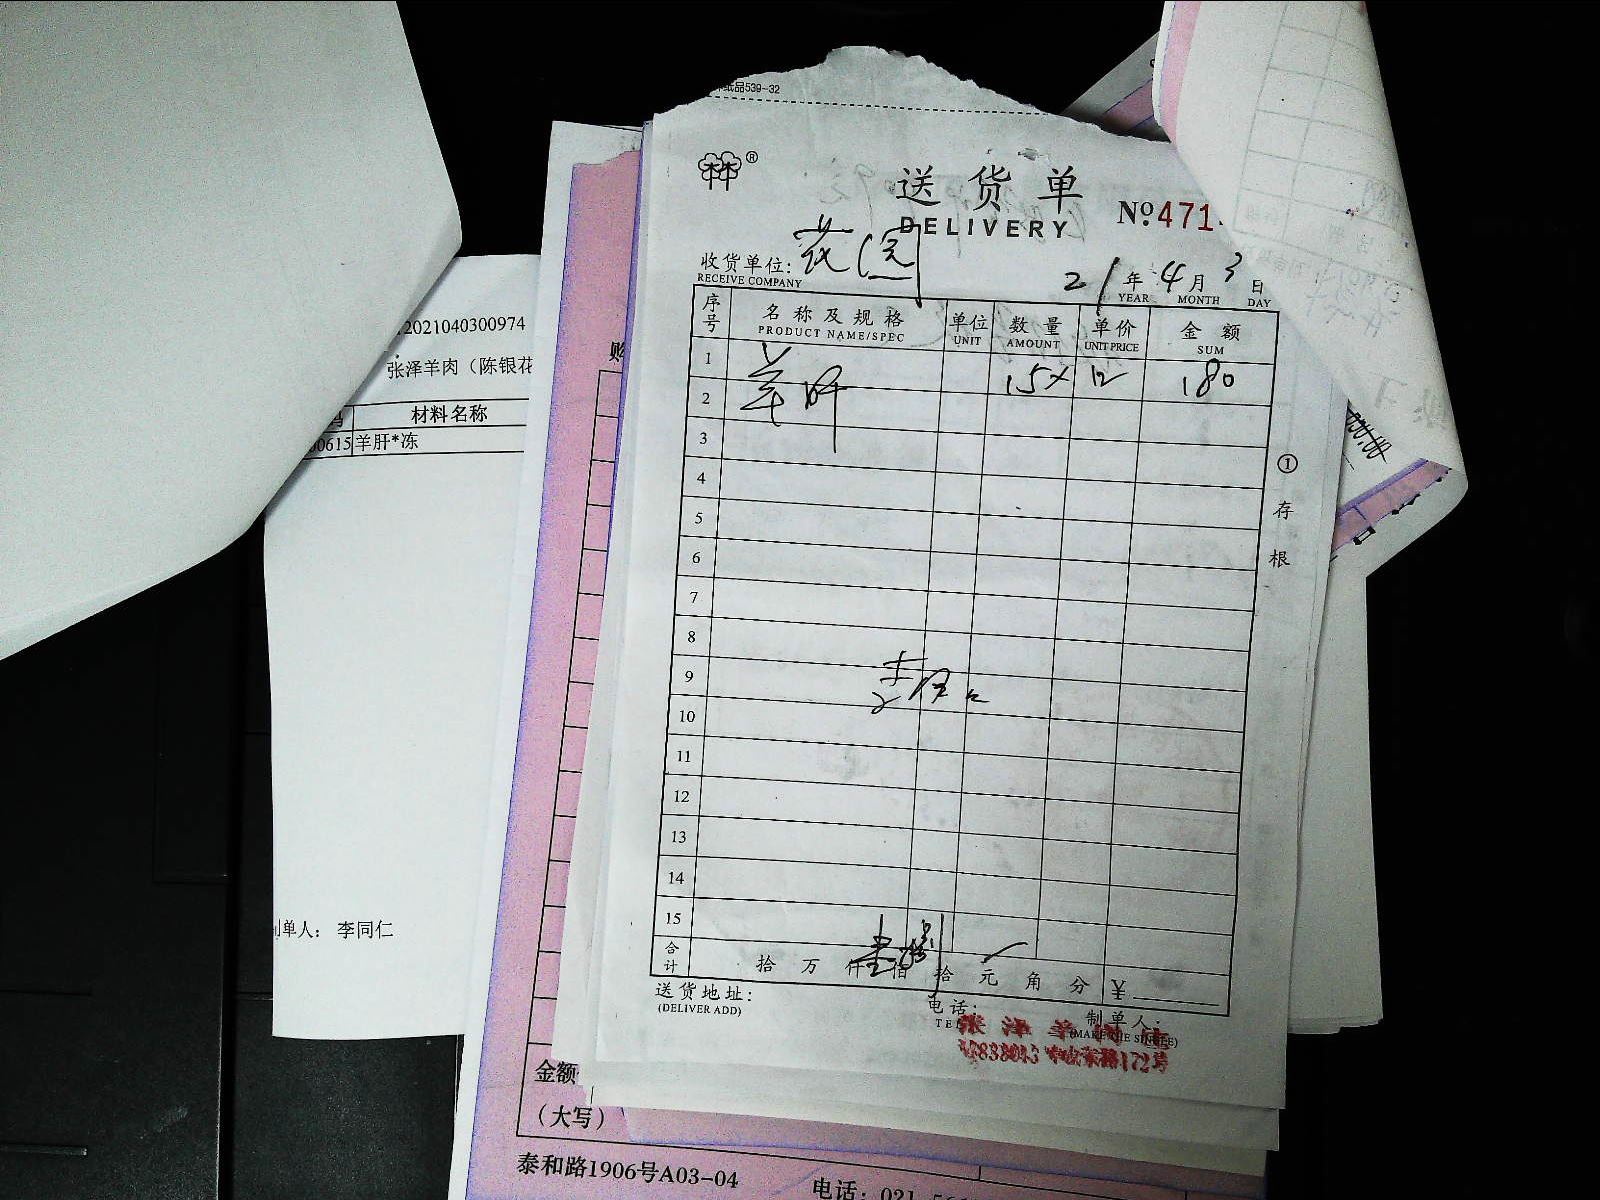 纸品539-32
林®
送货单
DELIVERY
№471
收货单位:
RECEIVE COMPANY
21年4月3日
YEAR MONTH DAY
序号 名称及规格 单位 数量 单价 金额
PRODUCT NAME/SPEC UNIT AMOUNT UNIT PRICE SUM
1 羊肝 15× 12 180
2
3
4
5
6
7
8
9
10
11
12
13
14
15
合计 拾万仟佰拾元角分 ¥
送货地址:
(DELIVER ADD)
电话:
制单人:
172号
①存根
2021040300974
张泽羊肉（陈银花
材料名称
0615 羊肝*冻
制单人: 李同仁
购
金额
（大写）
泰和路1906号A03-04
电话: 021